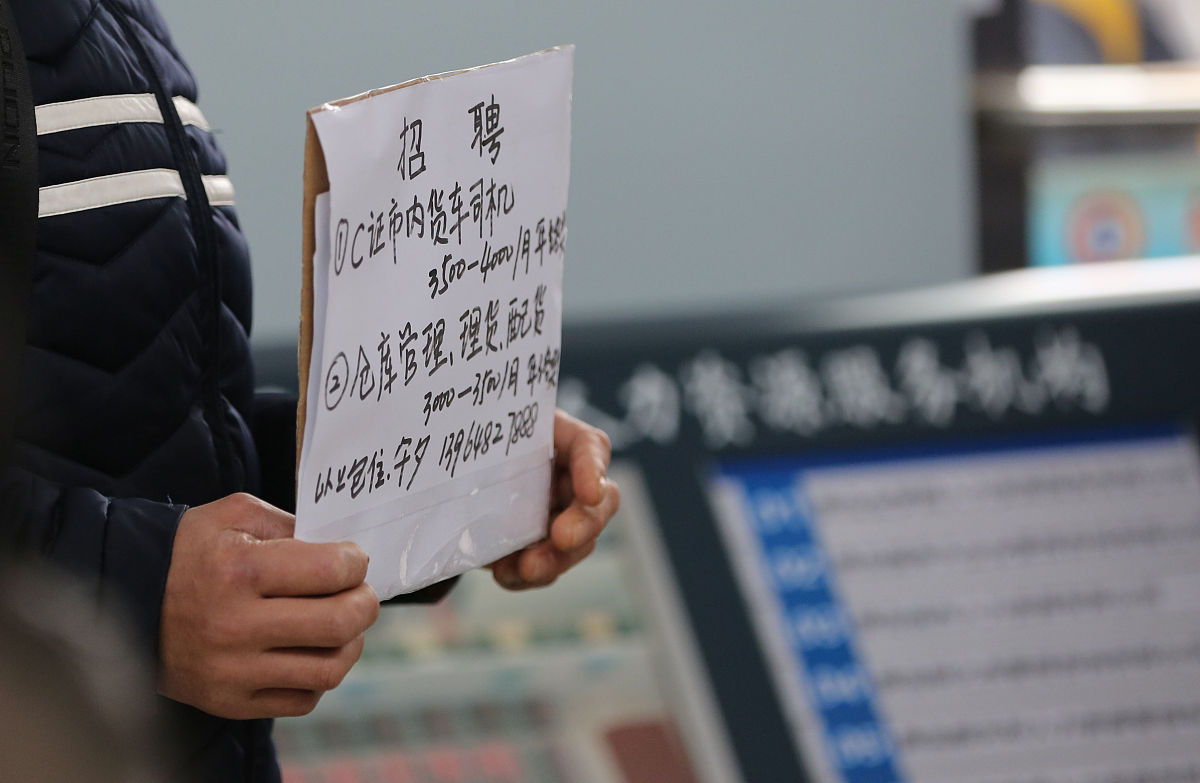 招 聘
①C证市内货车司机
3500-4000/月 年
②仓库管理、理货、配货
3000-3500/月 年
以上包住、午夕 13964827888
人力资源服务机构